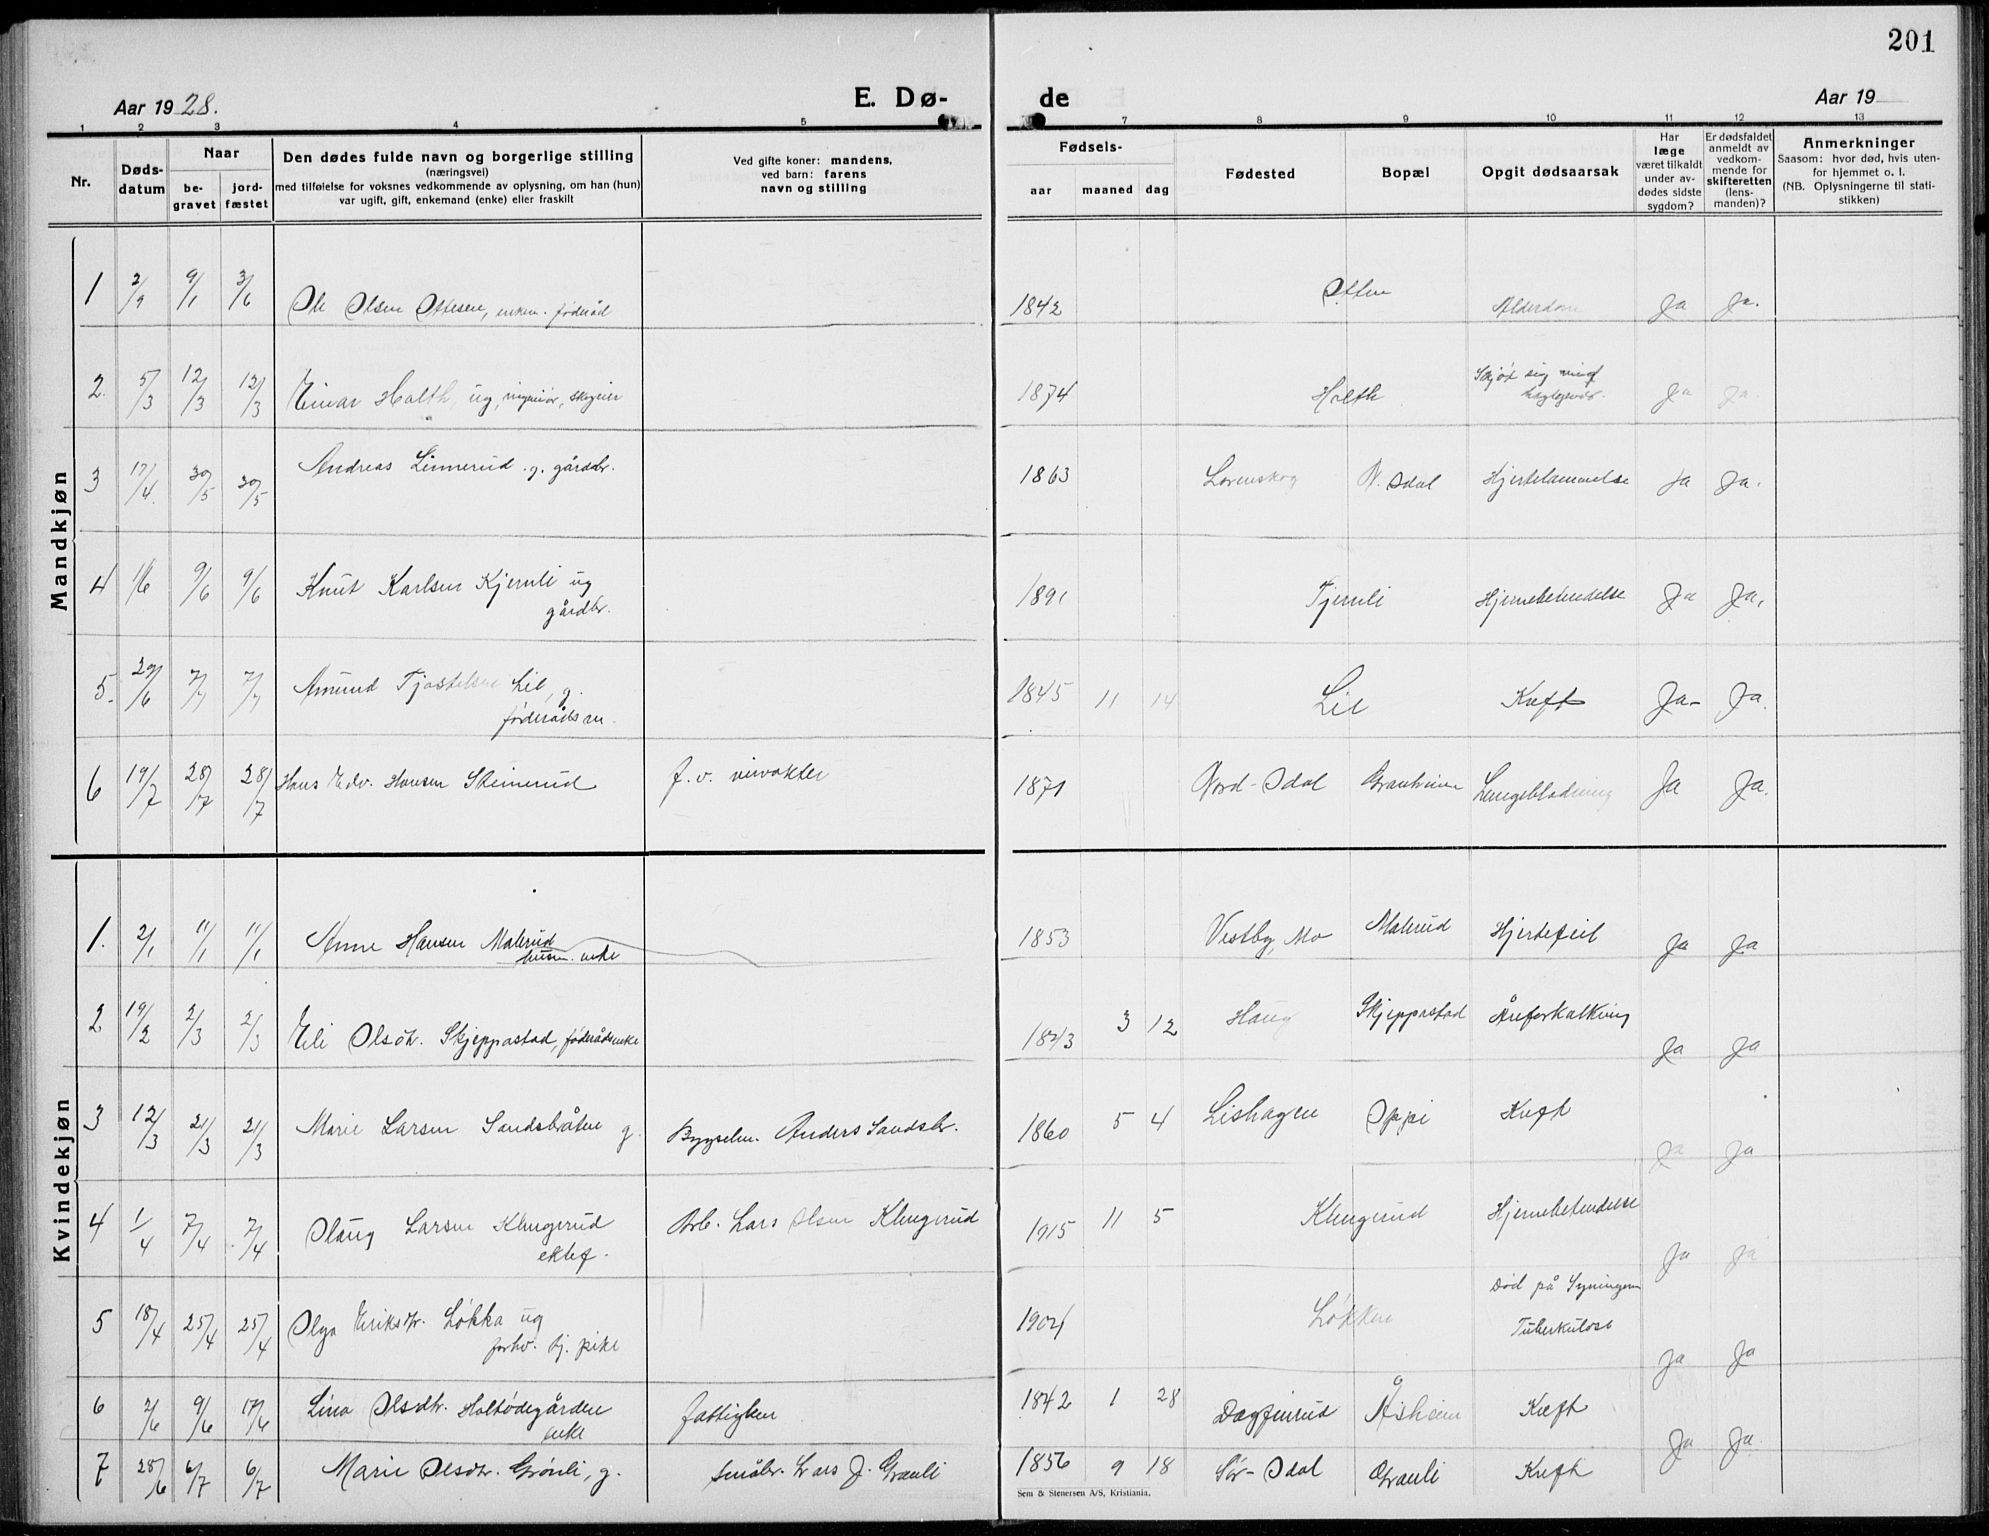 201
Aar 1928.
E. Dø-
de
Aar 19
1 2 3 4 5 7 8 9 10 11 12 13
Nr.
Døds-
datum
Naar
be-
gravet
jord-
fæstet
Den dødes fulde navn og borgerlige stilling
(næringsvei)
med tilføielse for voksnes vedkommende av oplysning, om han (hun)
var ugift, gift, enkemand (enke) eller fraskilt
Ved gifte koner: mandens,
ved barn: farens
navn og stilling
Fødsels-
aar maaned dag
Fødested
Bopæl
Opgit dødsaarsak
Har
læge
været tilkaldt
under av-
dødes sidste
sygdom?
Er dødsfaldet
anmeldt av
vedkom-
mende for
skifteretten
(lens-
manden)?
Anmerkninger
Saasom: hvor død, hvis uten-
for hjemmet o. l.
(NB. Oplysningerne til stati-
stikken)
Mandkjøn
1 2/9 9/1 3/6 Ole Olsen Ottesen, enkem. føderåd 1842 Otten Alderdom Ja Ja.
2. 5/3 12/3 12/3 Einar Holth, ug, ingeniør, skogeier 1874 Holth Skjøt sig med Ja Ja.
3 17/4. 30/5 30/5 Andreas Linnerud . g. gårdbr. 1863 Lørenskog N. Odal Hjertelammelse Ja Ja.
4 1/6 9/6 9/6 Knut Karlsen Kjernli ug
gårdbr. 1891 Tjernli Hjernebetendelse Ja Ja.
5. 29/6 7/7 7/7 Amund Tjostelsen Lie, g.
føderådsm. 1845 11 14 Lie Kreft Ja Ja.
6 19/7 28/7 28/7 Hans Edv. Hansen Steinerud f. v. 1871 Nord-Odal Granheim Lungeblødning Ja Ja.
Kvindekjøn
1. 2/1 11/1 11/1 Anne Hansen Malerud
husm. enke 1853 Vestby, Mo Malerud Hjertefeil Ja Ja
2 19/2 2/3 2/3 Eli Olsdtr. Skjeppastad, føderådsenke 1843 3 12 Haug Skjeppastad Åreforkalkning Ja Ja
3 12/3 21/3 21/3 Marie Larsen Sandsbråten g. Bygselm. Anders Sandsbr. 1860 5 4 Lishagen Oppi Kreft Ja Ja
4 1/4 7/4 7/4 Olaug Larsen Klungerud
ektef. Arb. Lars Olsen Klungerud 1915 11 5 Klungerud Hjernebetendelse Ja Ja
5 18/4 25/4 25/4 Olga Eriksdtr. Løkka ug
forhv. tj. pike 1904 Løkken Død på
Tuberkulose Ja Ja
6 2/6 9/6 17/6 Lina Olsdtr. Holtødegården
enke fattiglem 1842 1 28 Dagfinrud Åsheim Kreft Ja Ja.
7 28/6 6/7 6/7 Marie Olsdtr. Grønli, g. småbr. Lars J. Granli 1856 9 18 Sør-Odal Granli Kreft
Sem & Stenersen A/S, Kristiania.